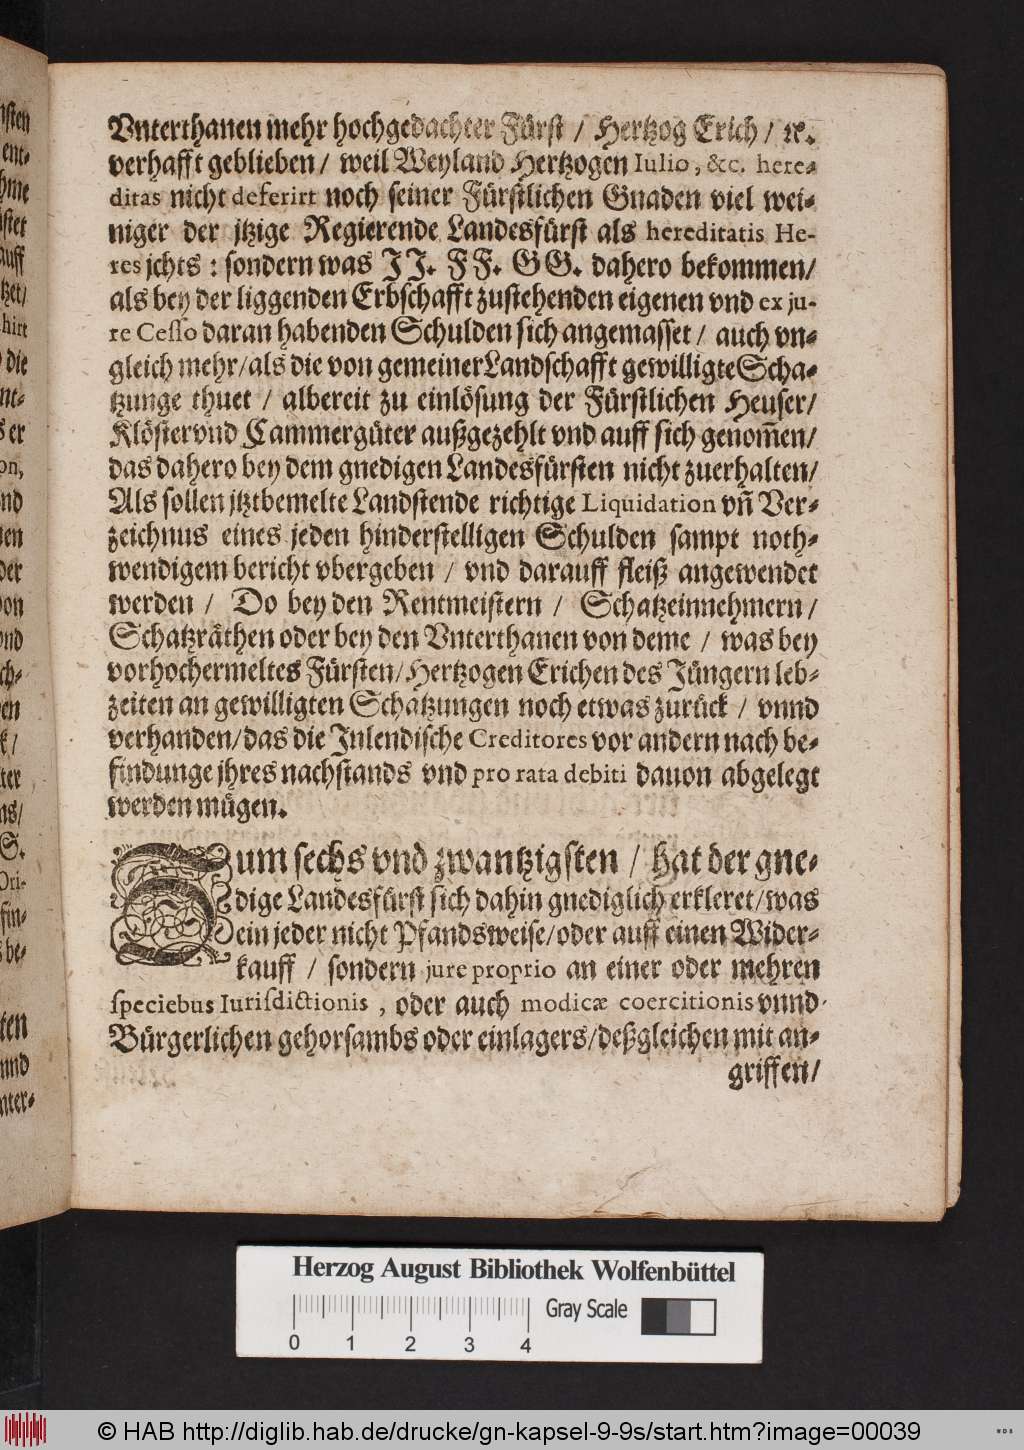 Vnterthanen mehr hochgedachter Fürst / Hertzog Erich / ꝛc.
verhafft geblieben / weil Weyland Hertzogen Iulio, &c. here-
ditas nicht deferirt noch seiner Fürstlichen Gnaden viel wei-
niger der jtzige Regierende Landesfürst als hereditatis He-
res jchts : sondern was JJ. FF. GG. dahero bekommen/
als bey der liggenden Erbschafft zustehenden eigenen vnd ex ju-
re Cesso daran habenden Schulden sich angemasset / auch vn-
gleich mehr/als die von gemeiner Landschafft gewilligte Scha-
tzunge thuet / albereit zu einlösung der Fürstlichen Heuser/
Klöster vnd Cammergüter außgezehlt vnd auff sich genom̃en/
das dahero bey dem gnedigen Landesfürsten nicht zuerhalten/
Als sollen jtztbemelte Landstende richtige Liquidation vñ Ver-
zeichnus eines jeden hinderstelligen Schulden sampt noth-
wendigem bericht vbergeben / vnd darauff fleiß angewendet
werden / Do bey den Rentmeistern / Schatzeinnehmern /
Schatzräthen oder bey den Vnterthanen von deme / was bey
vorhochermeltes Fürsten/Hertzogen Erichen des Jüngern leb-
zeiten an gewilligten Schatzungen noch etwas zurück / vnnd
verhanden/das die Inlendische Creditores vor andern nach be-
findunge jhres nachstands vnd pro rata debiti dauon abgelegt
werden mügen.
Zum sechs vnd zwantzigsten / hat der gne-
dige Landesfürst sich dahin gnediglich erkleret/was
ein jeder nicht Pfandsweise/oder auff einen Wider-
kauff / sondern jure proprio an einer oder mehren
speciebus Iurisdictionis , oder auch modicæ coercitionis vnnd
Bürgerlichen gehorsambs oder einlagers/deßgleichen mit an-
griffen/
Herzog August Bibliothek Wolfenbüttel
Gray Scale
0 1 2 3 4
© HAB http://diglib.hab.de/drucke/gn-kapsel-9-9s/start.htm?image=00039